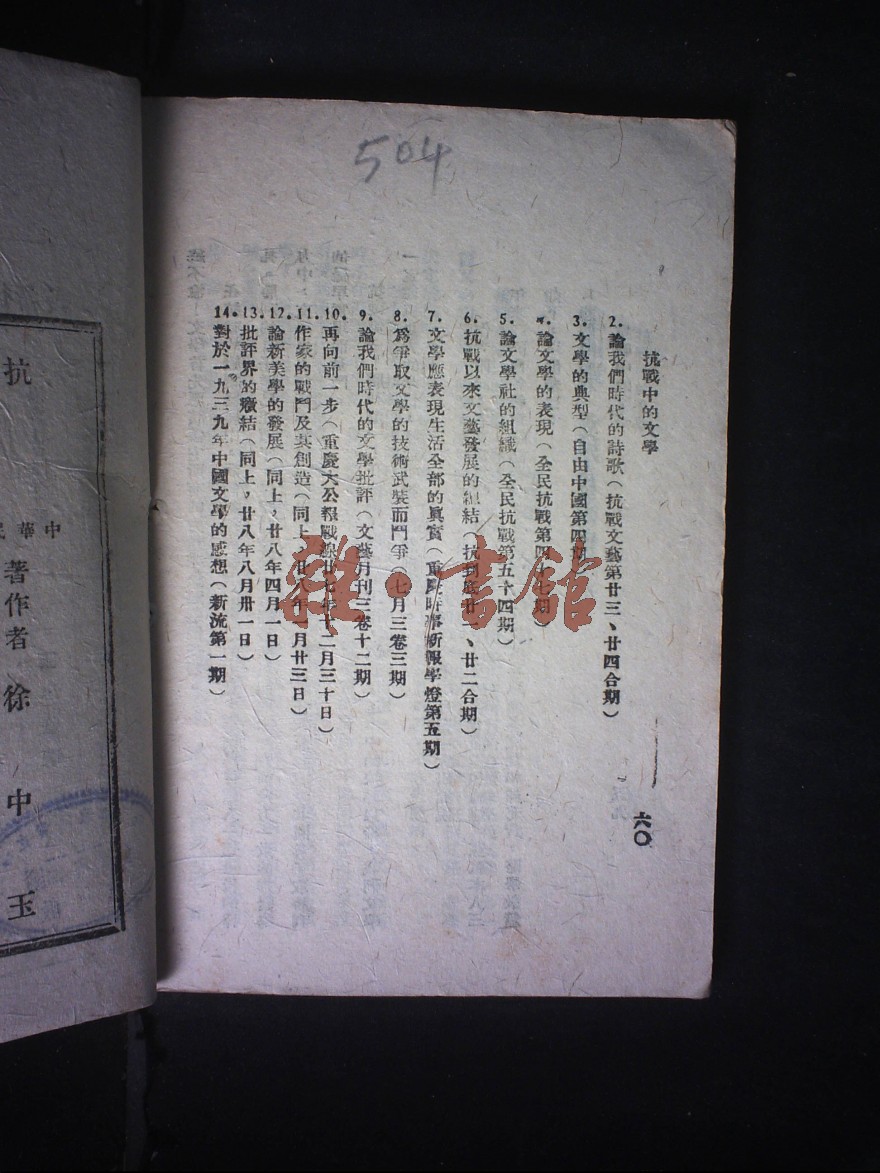 504
抗戰中的文學
六〇
2.論我們時代的詩歌(抗戰文藝第廿三、廿四合期)
3.文學的典型(自由中國第四期)
4.論文學的表現(全民抗戰第四十七期)
5.論文學社的組織(全民抗戰第五十四期)
6.抗戰以來文藝發展的總結(抗到底廿一、廿二合期)
7.文學應表現生活全部的眞實(重慶時事新報學燈第五期)
8.爲爭取文學的技術武裝而鬥爭(七月三卷三期)
9.論我們時代的文學批評(文藝月刊三卷十二期)
10.再向前一步(重慶大公報戰線廿七年十二月三十日)
11.作家的戰鬥及其創造(同上,廿八年一月廿三日)
12.論新美學的發展(同上,廿八年四月一日)
13.批評界的癥結(同上,廿八年八月卅一日)
14.對於一九三九年中國文學的感想(新流第一期)
雜·書館
抗
中華民
著作者 徐中玉